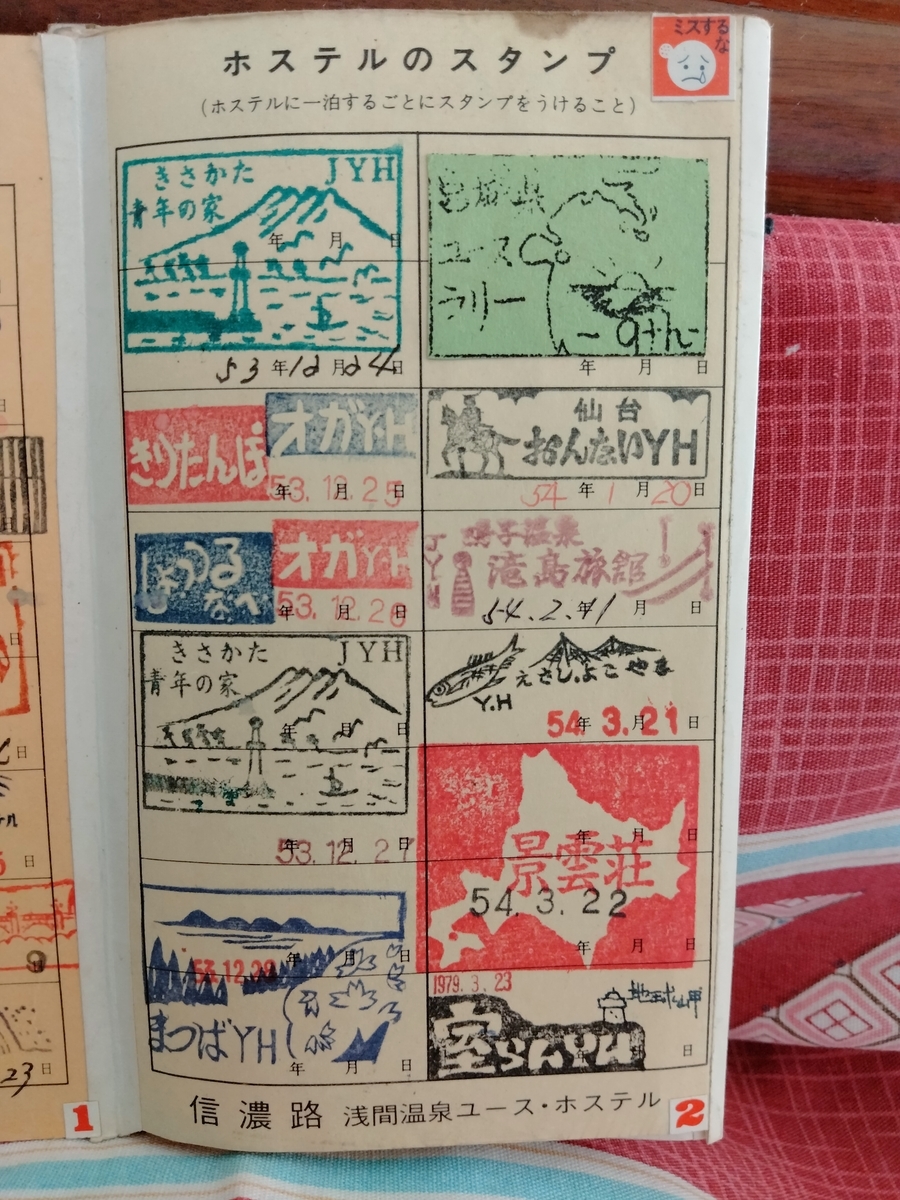 ホステルのスタンプ
ミスするな
(ホステルに一泊するごとにスタンプをうけること)
きさかた JYH
青年の家
年 月 日
53年12月24日
宮城県
ユース
ラリー
-9th-
年 月 日
きりたんぽ オガYH
53.12.25
年 月 日
仙台
おんないYH
54年1月20日
しょっつるなべ オガYH
53.12.26
年 月 日
鳴子温泉
滝島旅館
JYH
54.2.11
年 月 日
きさかた JYH
青年の家
年 月 日
53.12.27
年 月 日
えさし.よこやま
Y.H
54.3.21
年 月 日
景雲荘
54.3.22
年 月 日
年 月 日
53.12.28
年 月 日
まつばYH
年 月 日
1979.3.23
地球岬
室
年 月 日
信濃路 浅間温泉ユース・ホステル
1
2
日
日
日
日
日
23日